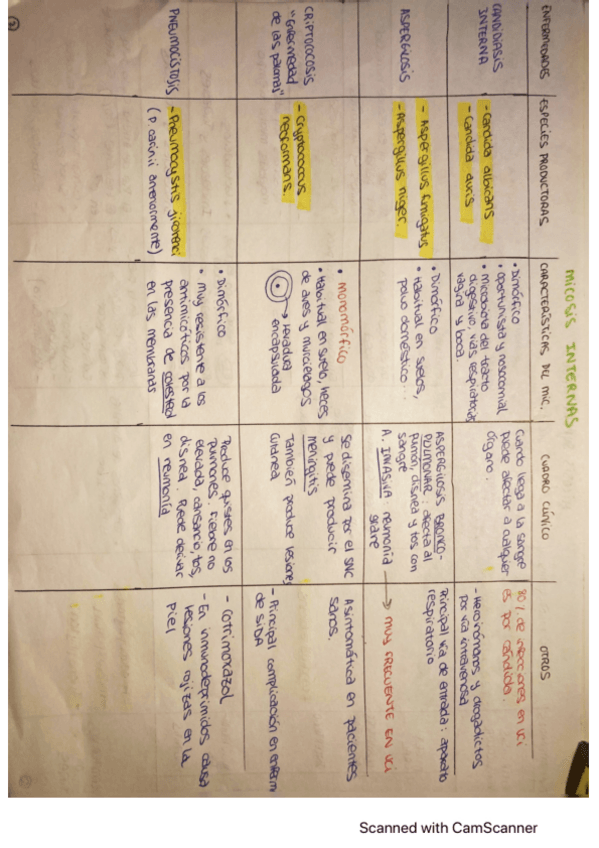 MICOSIS INTERNAS
ENFERMEDADES
ESPECIES PRODUCTORAS
CARACTERÍSTICAS DEL MIC.
CUADRO CLÍNICO
OTROS
CANDIDIASIS
INTERNA
- Candida albicans
- Candida auris
• Dimórfico
• oportunista y nosocomial
• microbiota del tracto
digestivo, vías respiratorias
vagina y boca.
Cuando llega a la sangre
puede afectar a cualquier
órgano.
30% de infecciones en UCI
es por cándida.
- Heroinómanos y drogadictos
por vía intravenosa
ASPERGILOSIS
- Aspergillus fumigatus
- Aspergillus niger.
• Dimórfico
• Habitual en suelos,
polvo doméstico...
ASPERGILOSIS BRONCO-
PULMONAR: afecta al
pulmón, disnea y tos con
sangre
A. INVASIVA: neumonía
grave
Principal vía de entrada: aparato
respiratorio
→ MUY FRECUENTE EN UCI
CRIPTOCOCOSIS
"Enfermedad
de las palomas"
- Cryptococcus
neoformans.
• monomórfico
• Habitual en suelo, heces
de aves y murciélagos
→ levadura
encapsulada
Se disemina por el SNC
y puede producir
meningitis
También produce lesiones
cutánea
Asintomática en pacientes
sanos.
- Principal complicación en enferm
de SIDA
PNEUMOCISTOSIS
- Pneumocystis jirovenci
(P carinii anteriormente)
• Dimórfico
• muy resistente a los
antimicóticos por la
presencia de colesterol
en las membranas
Produce quistes en los
pulmones. Fiebre no
elevada, cansancio, tos,
disnea. Puede derivar
en neumonía
- Cotrimoxazol
- En inmunodeprimidos causa
lesiones rojizas en la
piel
Scanned with CamScanner